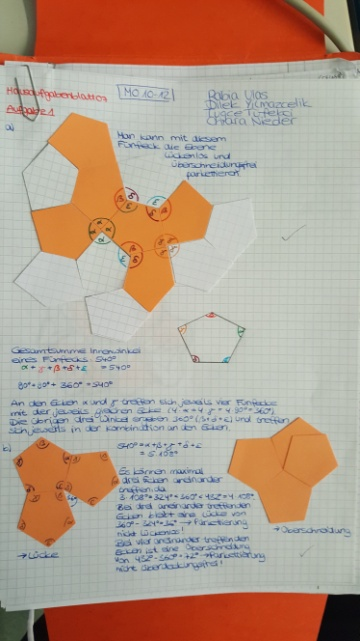 Hausaufgabenblatt
MO 10-12
Rabia Ulas
Dilek Yilmazcelik
Chiara Nieder
Aufgabe 1
a)
Man kann mit diesem
Fünfeck die Ebene
lückenlos und
überschneidungsfrei
parkettieren
Gesamtsumme Innenwinkel
eines Fünfecks: 540°
= 540°
+ 360° = 540°
An den Ecken α und γ treffen sich jeweils vier Fünfecke
mit der jeweils gleichen Ecke
Die übrigen drei Winkel ergeben 360° (β+δ+ε) und treffen
sich jeweils in der Kombination an den Ecken.
b)
540° = α+β+γ+δ+ε
= 5·108°
Es können maximal
drei Ecken aneinander
treffen, da
3·108° = 324° < 360° < 432° = 4·108°
Bei drei aneinander treffenden
Ecken bleibt eine Lücke von
360° - 324° = 36° → Parkettierung
nicht lückenlos!
Bei vier aneinander treffenden
Ecken ist eine Überschneidung
von 432° - 360° = 72° → Parkettierung
nicht überdeckungsfrei!
→ Lücke
→ Überschneidung